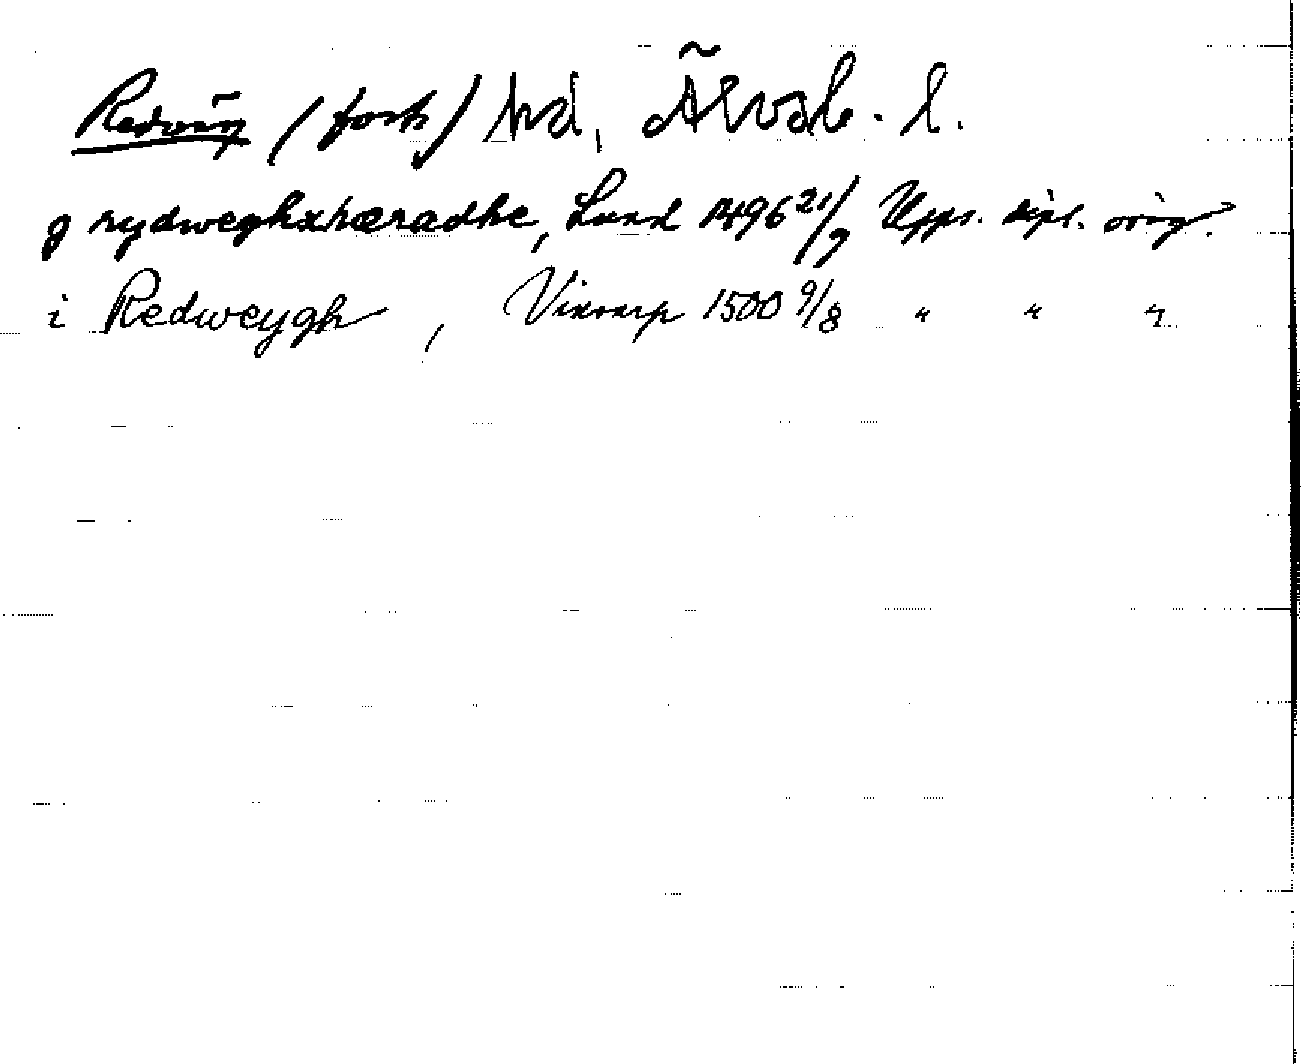 Redväg (forts) hd, Älvsb. l.
J rydweghxhæradhe, Lund 1496 21/9 Upps. dipl. orig.
i Redweygh, Vinsarp 1500 9/8 " " "